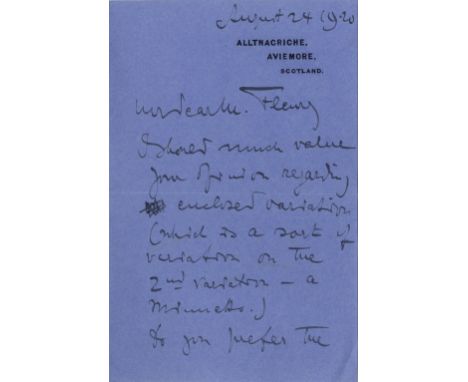 August 24 1920
ALLTNACRICHE,
AVIEMORE,
SCOTLAND.
My dear M. Fleury
I should much value
your opinion regarding
enclosed variation
(which is a sort of
variation on the
2nd variation – a
Minuetto.)
Do you prefer the